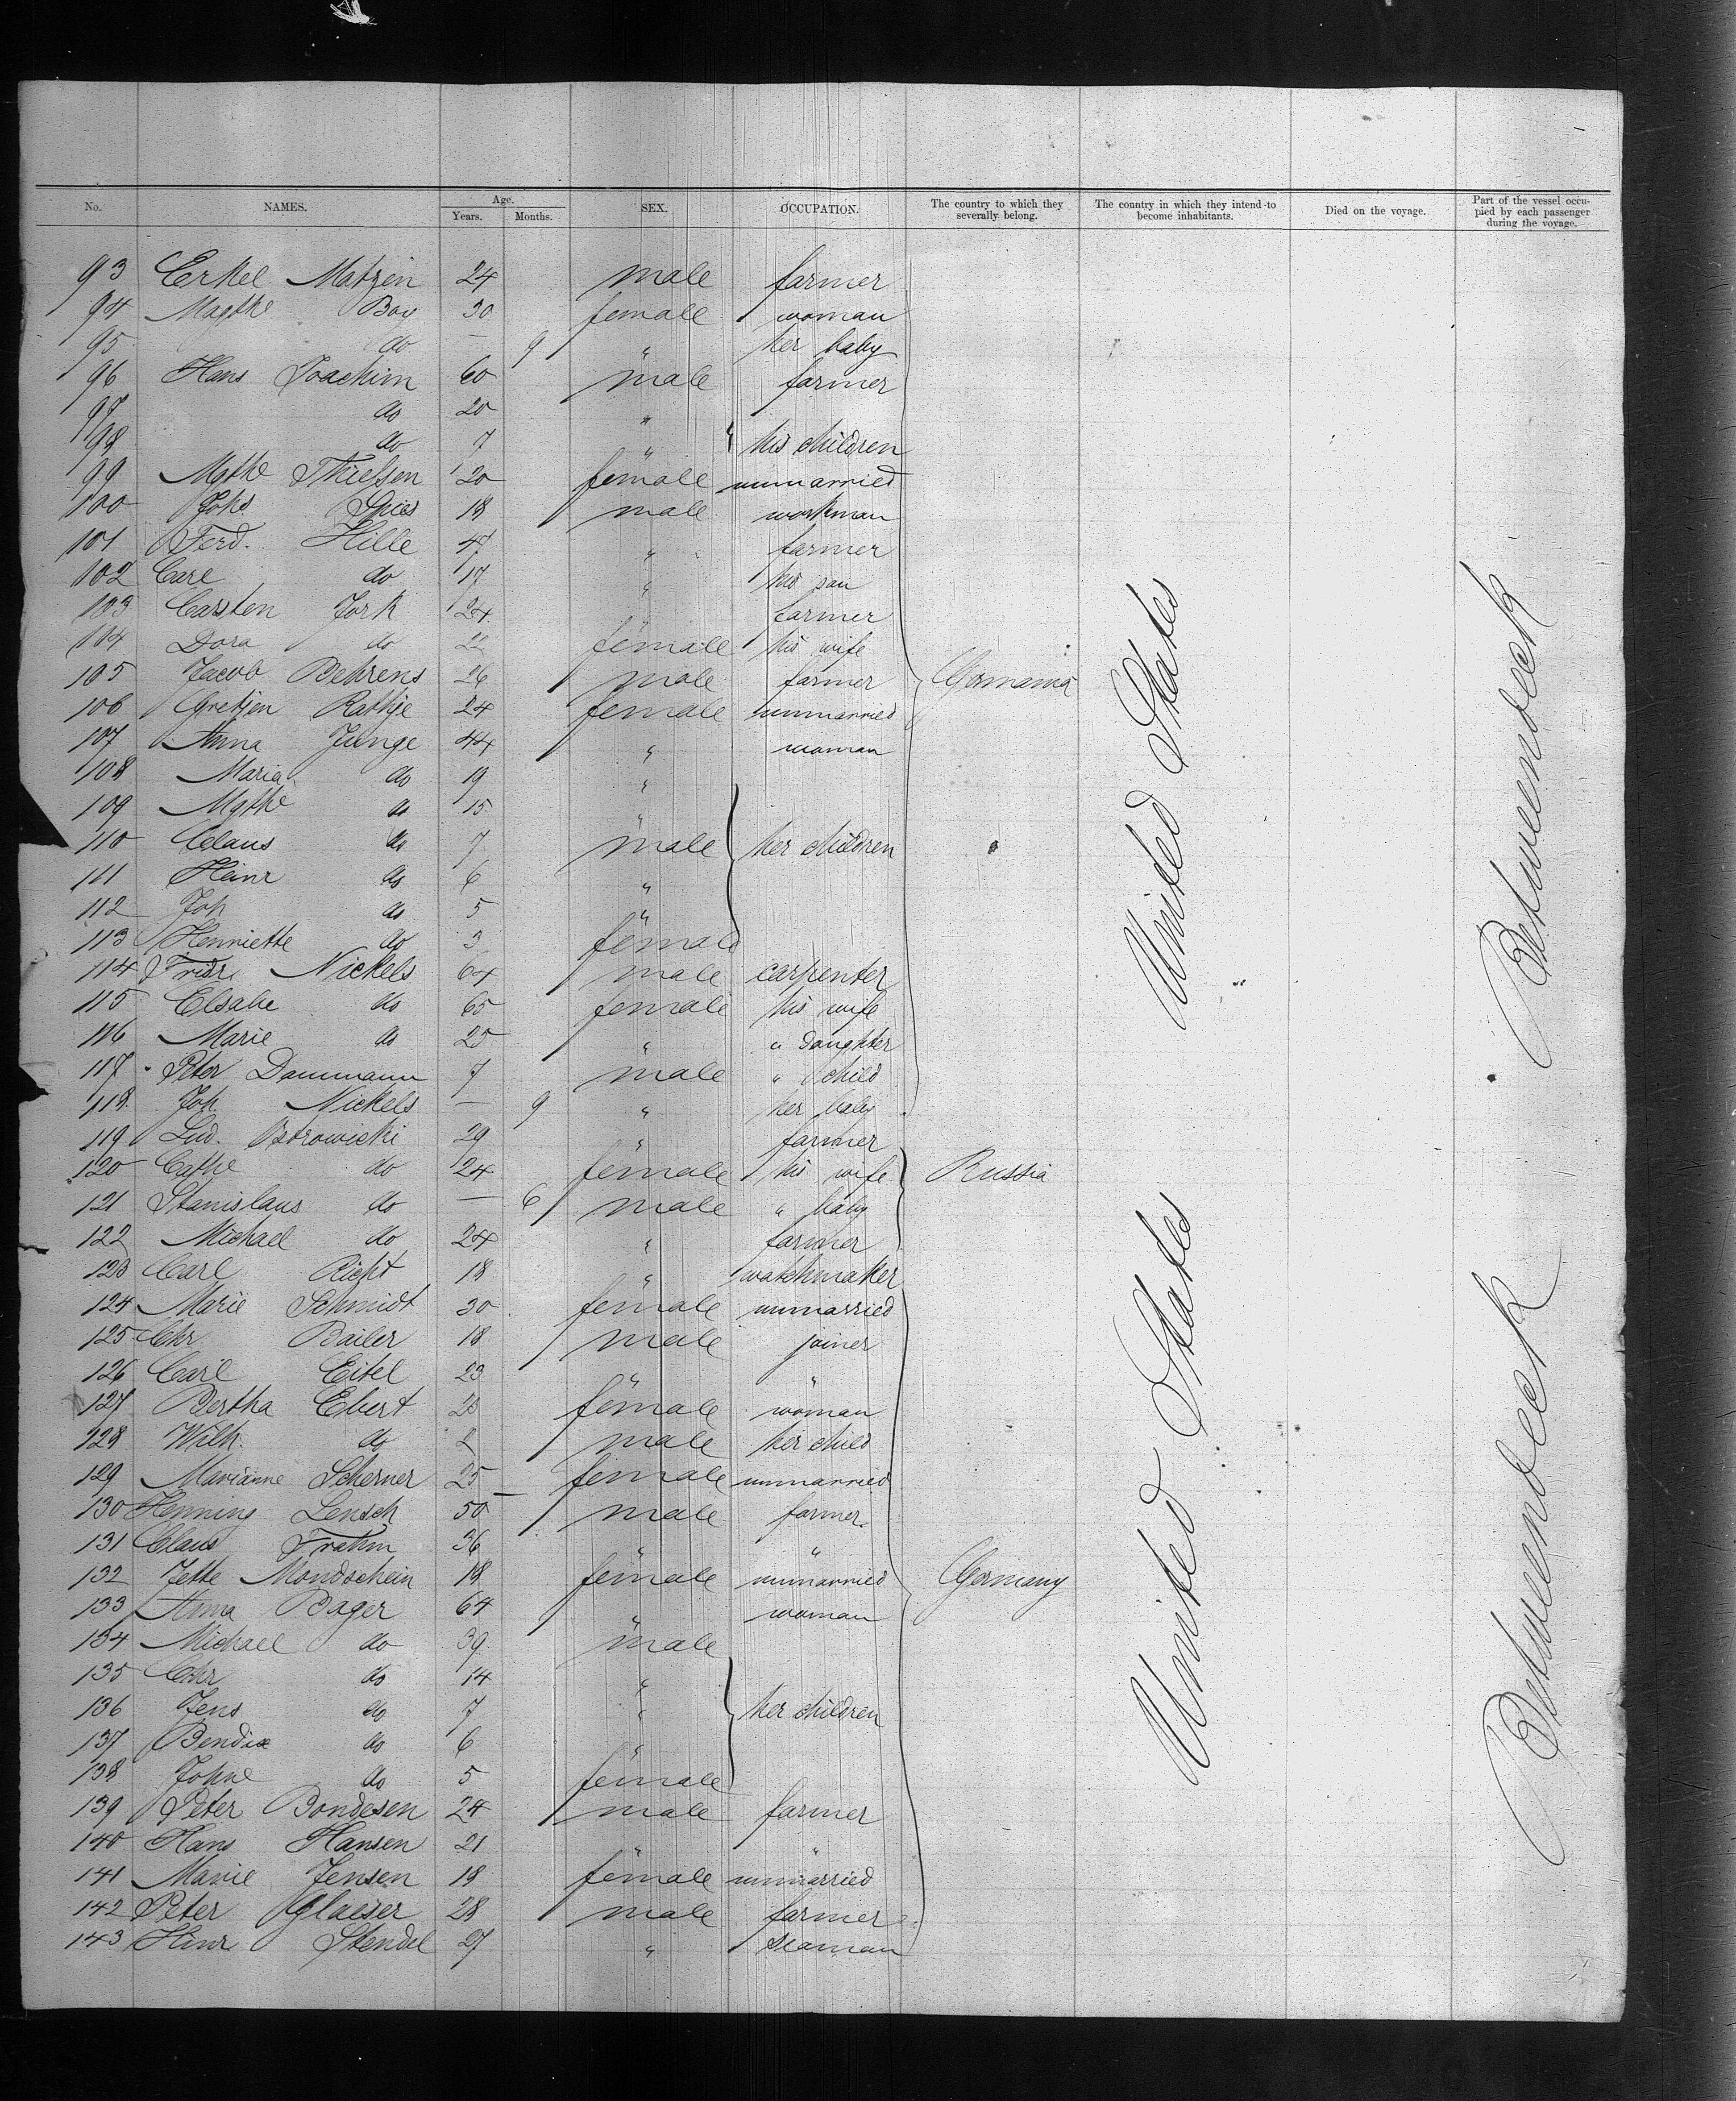 No. NAMES. Age. Years. Months. SEX. OCCUPATION. The country to which they severally belong. The country in which they intend to become inhabitants. Died on the voyage. Part of the vessel occupied by each passenger during the voyage.
93 Erkel Matzen 24 male farmer
94 Magthe Boy 30 female woman
95 do — 9 " her baby
96 Hans Joachim 60 male farmer
97 do 20 "
98 do 7 " his children
99 Mgthe Thießen 20 female unmarried
100 Johs Spies 18 male workman
101 Ferd. Hille 47 " farmer
102 Carl do 17 " his son
103 Carsten Jork 24 farmer
104 Dora do 22 female his wife
105 Jacob Behrens 26 male farmer Germania
106 Gretjen Rathje 24 female unmarried
107 Anna Junge 44 " woman
108 Maria do 19 "
109 Mgthe do 15 "
110 Claus do 7 male her children
111 Heinr do 6 "
112 Joh do 5 "
113 Henriette do 3 female
114 Fridr. Nickels 64 male carpenter
115 Elsabe do 65 female his wife
116 Marie do 25 " " daughter
117 Peter Dammann 7 male " child
118 Joh Nickels — 9 " her baby
119 Lud. Ostrowicki 29 " farmer
120 Cathe do 24 female his wife Russia
121 Stanislaus do — 6 male " baby
122 Michael do 24 " farmer
123 Carl Richt 18 " watchmaker
124 Marie Schmidt 30 female unmarried
125 Chr. Bailer 18 male joiner
126 Carl Eitel 23 " "
127 Bertha Ebert 28 female woman
128 Wilh. do 2 male her child
129 Marianne Scherner 25 female unmarried
130 Henning Lensch 50 male farmer
131 Claus Frahm 36 " "
132 Jette Mondschein 18 female unmarried Germany
133 Anna Bager 64 " woman
134 Michael do 39 male
135 Chr do 14 "
136 Jens do 7 " her children
137 Bendix do 6 "
138 Johne do 5 female
139 Peter Bondesen 24 male farmer
140 Hans Hansen 21 " "
141 Marie Jensen 18 female unmarried
142 Peter Glaeser 28 male farmer
143 Hinr Stendel 27 " seaman
United States
United States
Betweendeck
Betweendeck